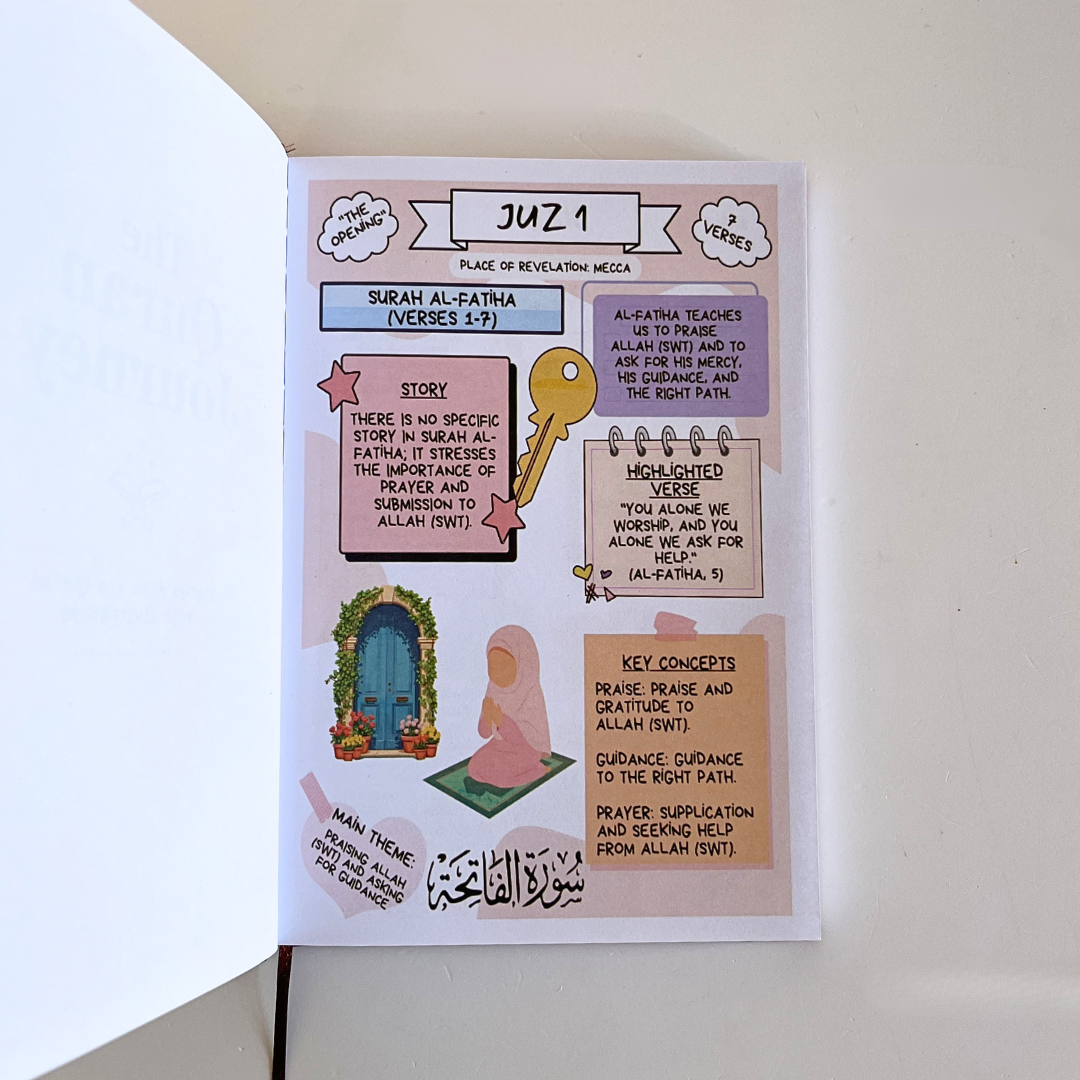 "THE
OPENING"
JUZ 1
7
VERSES
PLACE OF REVELATION: MECCA
SURAH AL-FATIHA
(VERSES 1-7)
AL-FATIHA TEACHES
US TO PRAISE
ALLAH (SWT) AND TO
ASK FOR HIS MERCY,
HIS GUIDANCE, AND
THE RIGHT PATH.
STORY
THERE IS NO SPECIFIC
STORY IN SURAH AL-
FATIHA; IT STRESSES
THE IMPORTANCE OF
PRAYER AND
SUBMISSION TO
ALLAH (SWT).
HIGHLIGHTED
VERSE
"YOU ALONE WE
WORSHIP, AND YOU
ALONE WE ASK FOR
HELP."
(AL-FATIHA, 5)
KEY CONCEPTS
PRAISE: PRAISE AND
GRATITUDE TO
ALLAH (SWT).
GUIDANCE: GUIDANCE
TO THE RIGHT PATH.
PRAYER: SUPPLICATION
AND SEEKING HELP
FROM ALLAH (SWT).
MAIN THEME:
PRAISING ALLAH
(SWT) AND ASKING
FOR GUIDANCE
سُورَةُ الفَاتِحَةِ
The
Quran
Journey